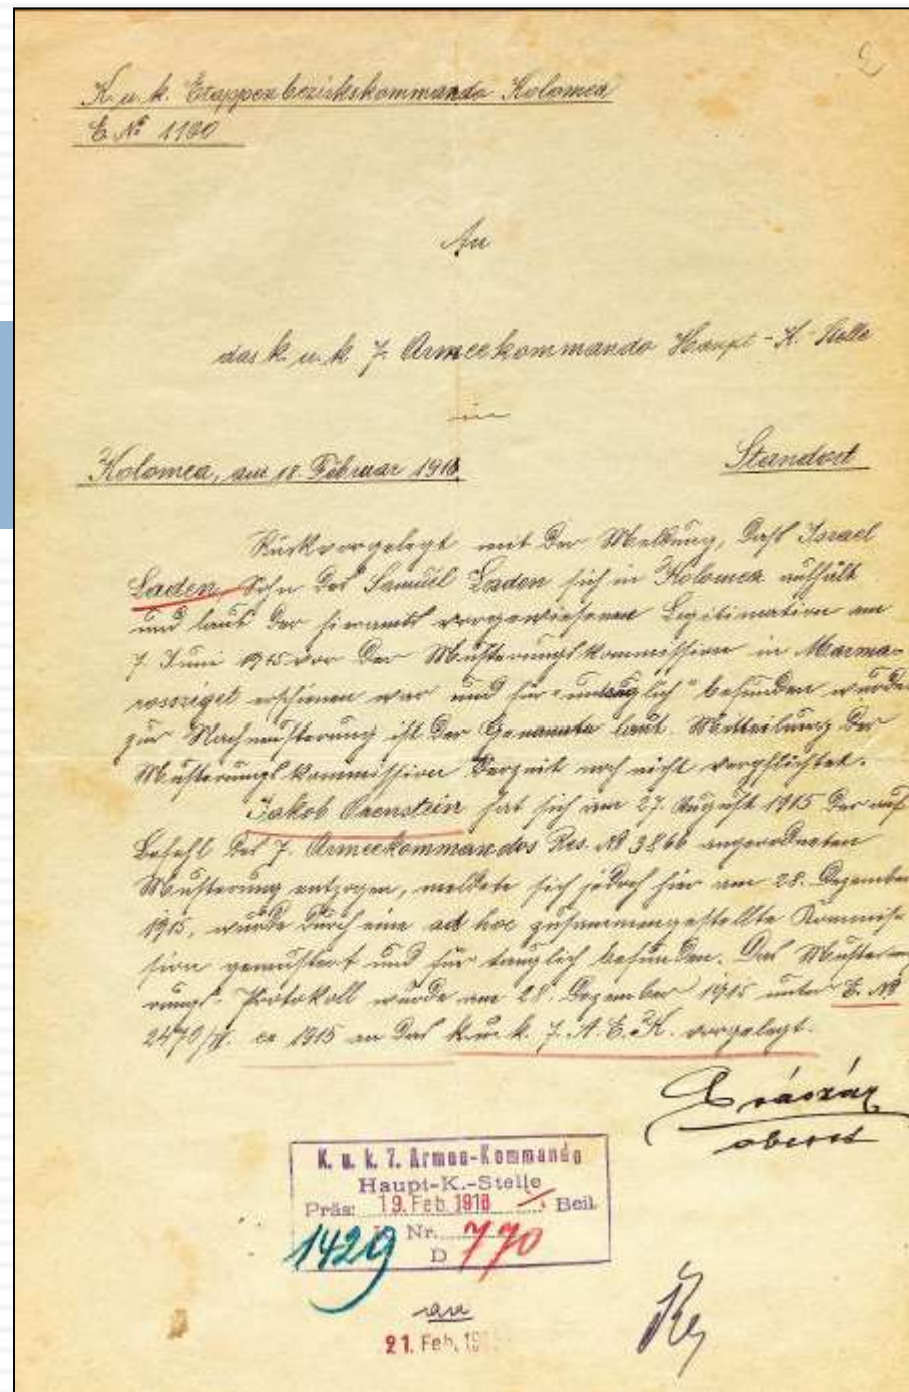 2
K. u. k. Etappenbezirkskommando Kolomea
E. № 1100
An
das k. u. k. 7. Armeekommando Haupt-K.-Stelle
in
Kolomea, am 18. Februar 1916.
Standort
Rückvorgelegt mit der Meldung, daß Israel
Laden, Sohn des Samuel Laden sich in Kolomea aufhält
und laut der hieramts vorgewiesenen Legitimation am
7. Juni 1915 vor der Musterungskommission in Marma-
rossziget erschienen war und für "untauglich" befunden wurde
zur Nachmusterung ist der Genannte laut Mitteilung der
Musterungskommission derzeit noch nicht verpflichtet.
Jakob Orenstein hat sich am 27. August 1915 der auf
Befehl des 7. Armeekommandos Res. № 3866 angeordneten
Musterung entzogen, meldete sich jedoch hier am 28. Dezember
1915, wurde durch eine ad hoc zusammengestellte Kommis-
sion gemustert und für tauglich befunden. Das Muste-
rungs-Protokoll wurde am 28. Dezember 1915 unter E. №
2470/ ex 1915 an das k. u. k. 7. A. E. K. vorgelegt.
Oberst
K. u. k. 7. Armee-Kommando
Haupt-K.-Stelle
Präs: 19. Feb. 1916 Beil.
1429 Nr. 770
D
an
21. Feb. 19